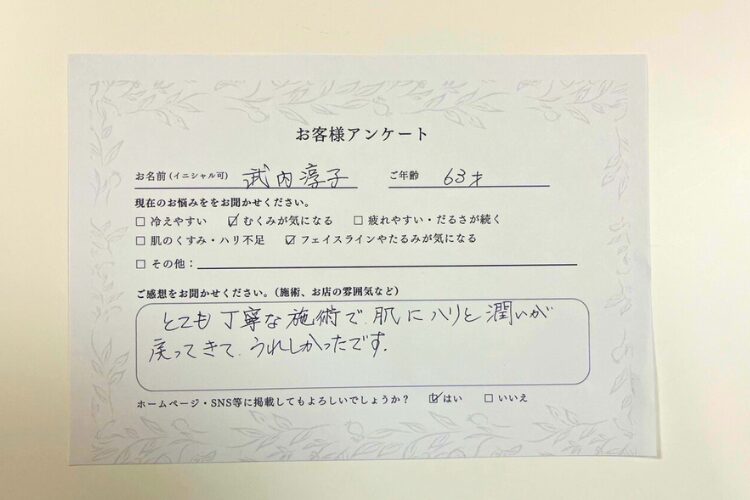 お客様アンケート
お名前(イニシャル可) 武内淳子 ご年齢 63才
現在のお悩みををお聞かせください。
☐ 冷えやすい ☑ むくみが気になる ☐ 疲れやすい・だるさが続く
☐ 肌のくすみ・ハリ不足 ☑ フェイスラインやたるみが気になる
☐ その他：
ご感想をお聞かせください。(施術、お店の雰囲気など)
とても丁寧な施術で、肌にハリと潤いが
戻ってきて、うれしかったです。
ホームページ・SNS等に掲載してもよろしいでしょうか？ ☑ はい ☐ いいえ